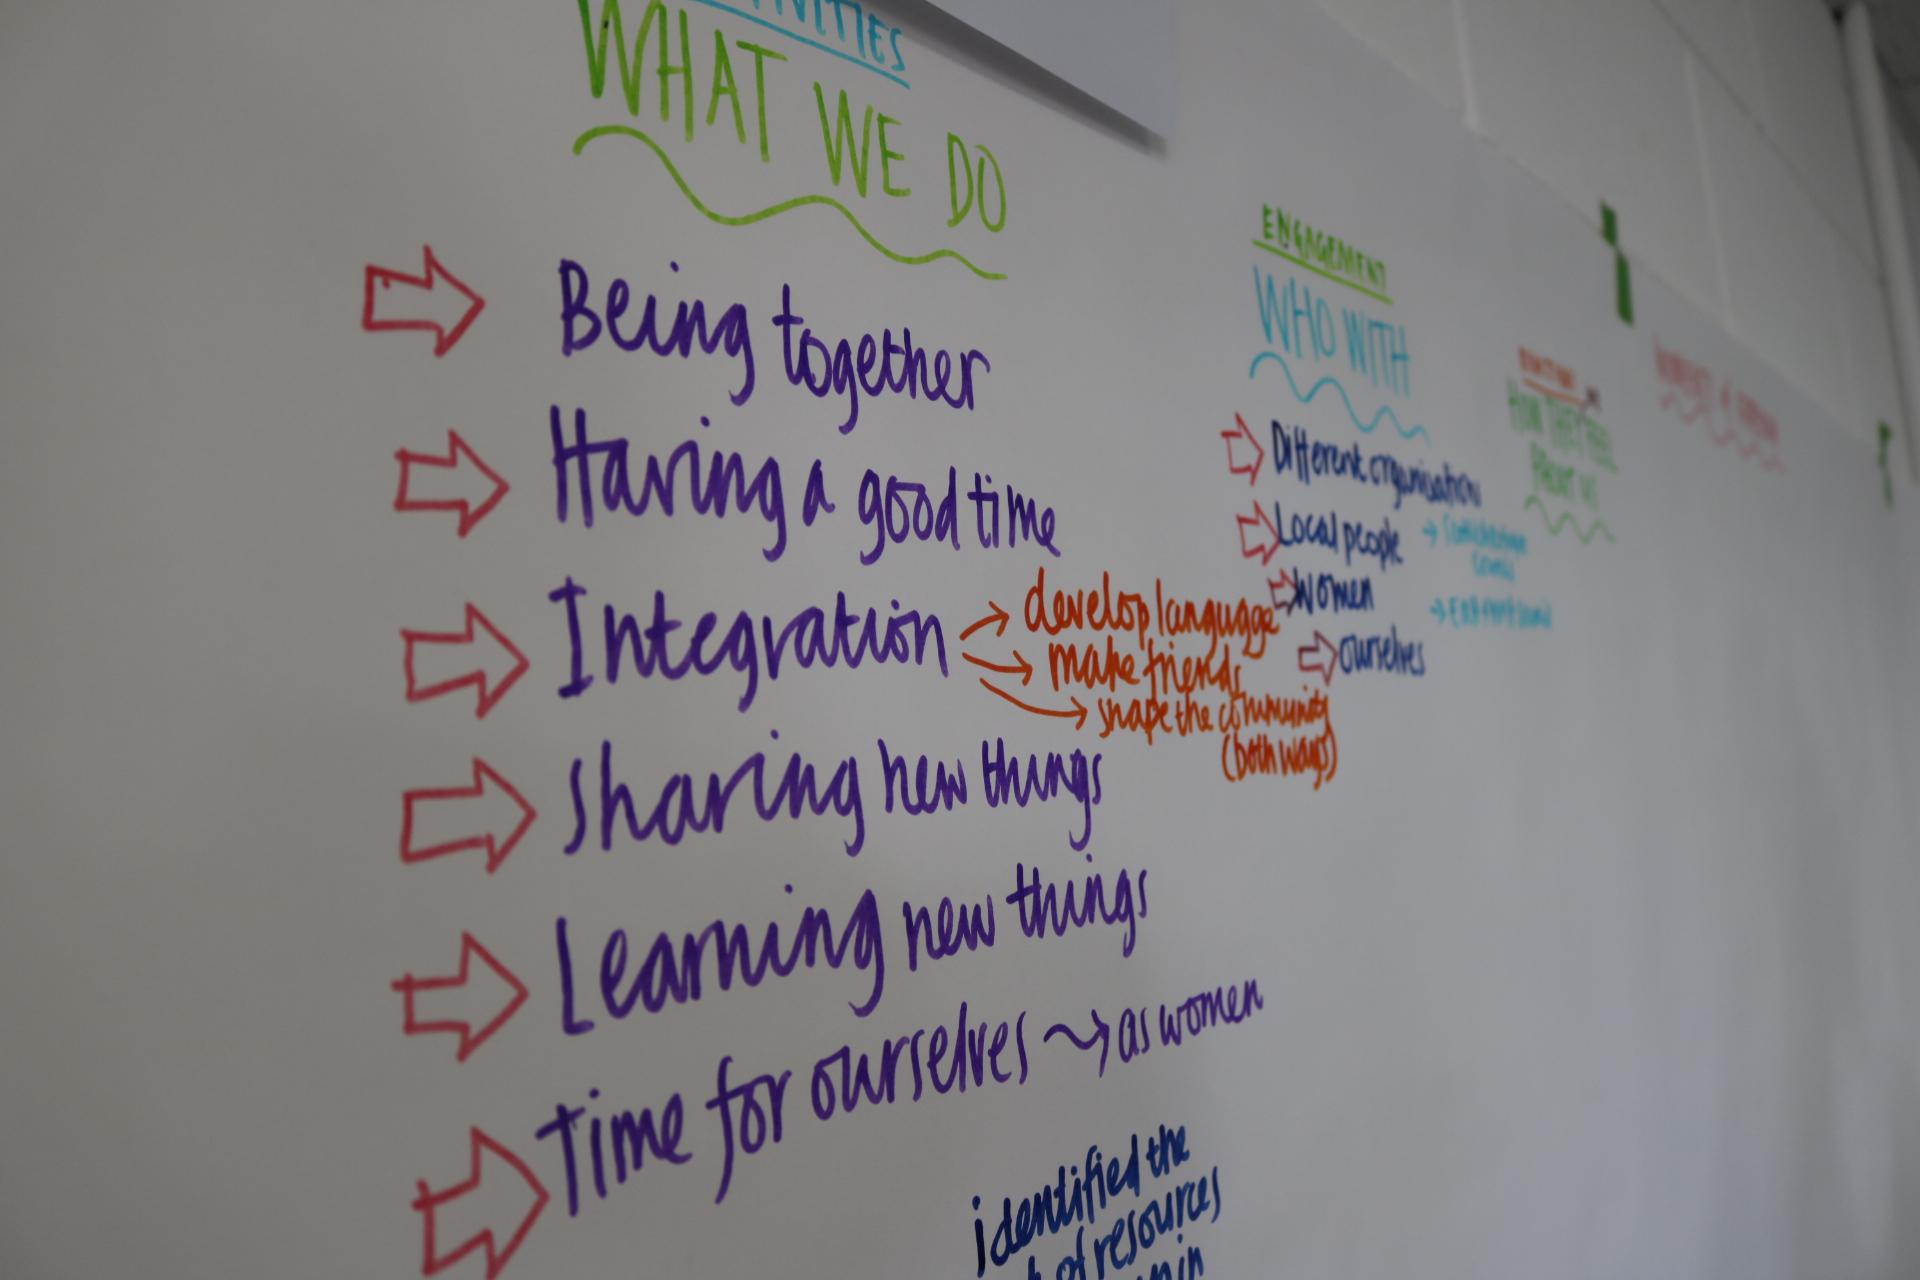 WHAT WE DO
Being together
Having a good time
Integration
develop langugge
make friends
shape the community
(both ways)
Sharing new things
Learning new things
Time for ourselves → as women
identified the
of resources
ENGAGEMENT
WHO WITH
Different organisation
Local people
women
ourselves